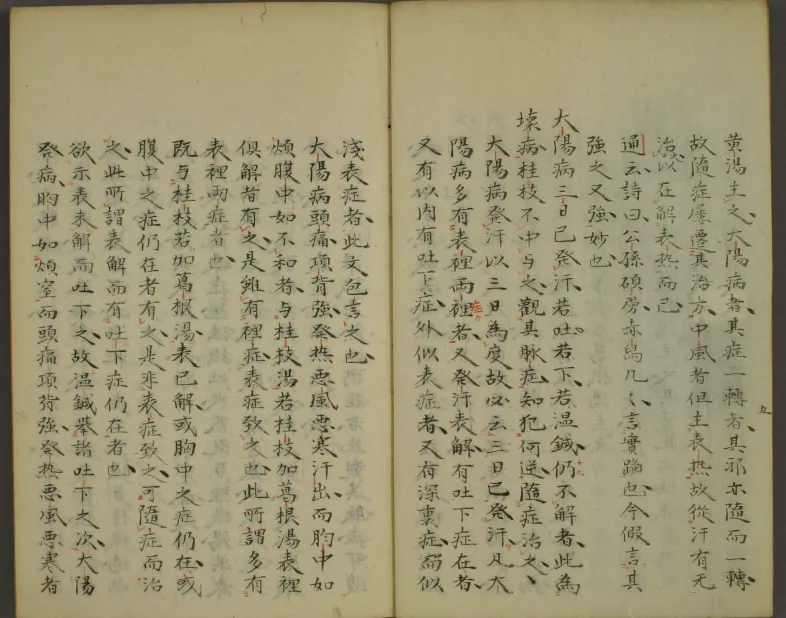 黄湯主之大陽病者其症一轉者其邪亦隨而一轉
故隨症屢遷其治方中風者但主表热故從汗有无
治以在解表热而已
通云詩曰公孫碩膚赤舄几〻言實蹈也今假言其
強之又強妙也
大陽病三日已発汗若吐若下若温鍼仍不解者此為
壞病桂枝不中与之觀其脉症知犯何逆隨症治之
大陽病発汗以三日為度故必云三日已発汗凡大
陽病多有表裡両症裡者又発汗表解有吐下症在者
又有以内有吐下症外似表症者又有深裏症而似
淺表症者此文包言之也
大陽病頭痛項背強発热悪風悪寒汗出而胸中如
煩腹中如不和者与桂枝湯若桂枝加葛根湯表裡
倶解者有之是雖有裡症表症致之也此所謂多有
表裡両症者也
既与桂枝若加葛根湯表已解或胸中之症仍在或
腹中之症仍在者有之是非表症致之可隨症而治
之此所謂表解而有吐下症仍在者也
欲示表未解而吐下之故温鍼挙諸吐下之次大陽
発病胸中如煩窒而頭痛項背強発热悪風悪寒者
五